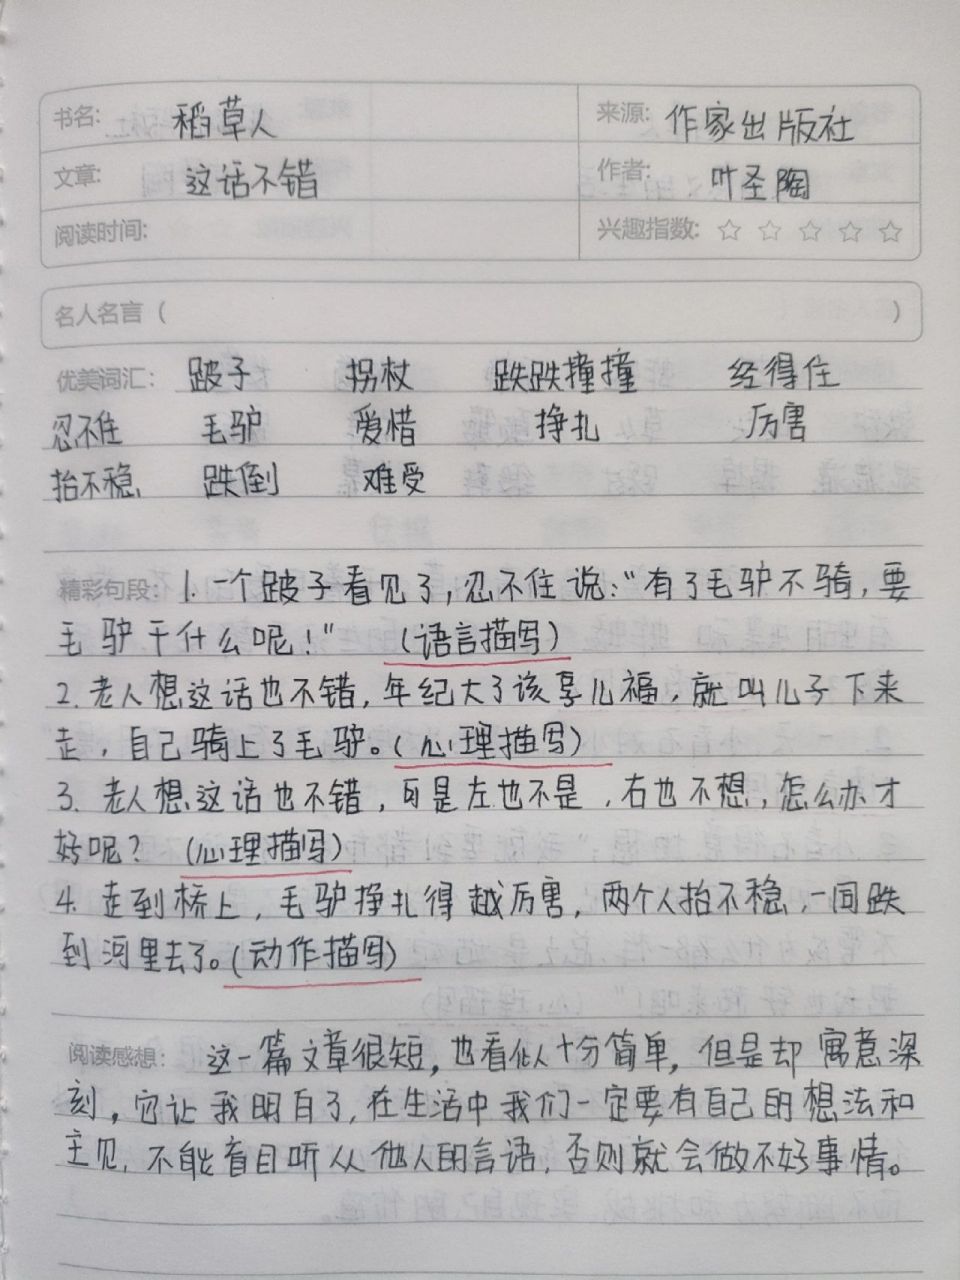 书名: 稻草人 来源: 作家出版社
文章: 这话不错 作者: 叶圣陶
阅读时间: 兴趣指数: ☆ ☆ ☆ ☆ ☆
名人名言 ( )
优美词汇: 跛子 拐杖 跌跌撞撞 经得住
忍不住 毛驴 爱惜 挣扎 厉害
抬不稳 跌倒 难受
精彩句段: 1. 一个跛子看见了,忍不住说:“有了毛驴不骑,要
毛驴干什么呢!” (语言描写)
2. 老人想这话也不错,年纪大了该享儿福,就叫儿子下来
走,自己骑上了毛驴。(心理描写)
3. 老人想这话也不错,可是左也不是,右也不想,怎么办才
好呢? (心理描写)
4. 走到桥上,毛驴挣扎得越厉害,两个人抬不稳,一同跌
到河里去了。(动作描写)
阅读感想: 这一篇文章很短,也看似十分简单,但是却寓意深
刻,它让我明白了,在生活中我们一定要有自己的想法和
主见,不能盲目听从他人的言语,否则就会做不好事情。